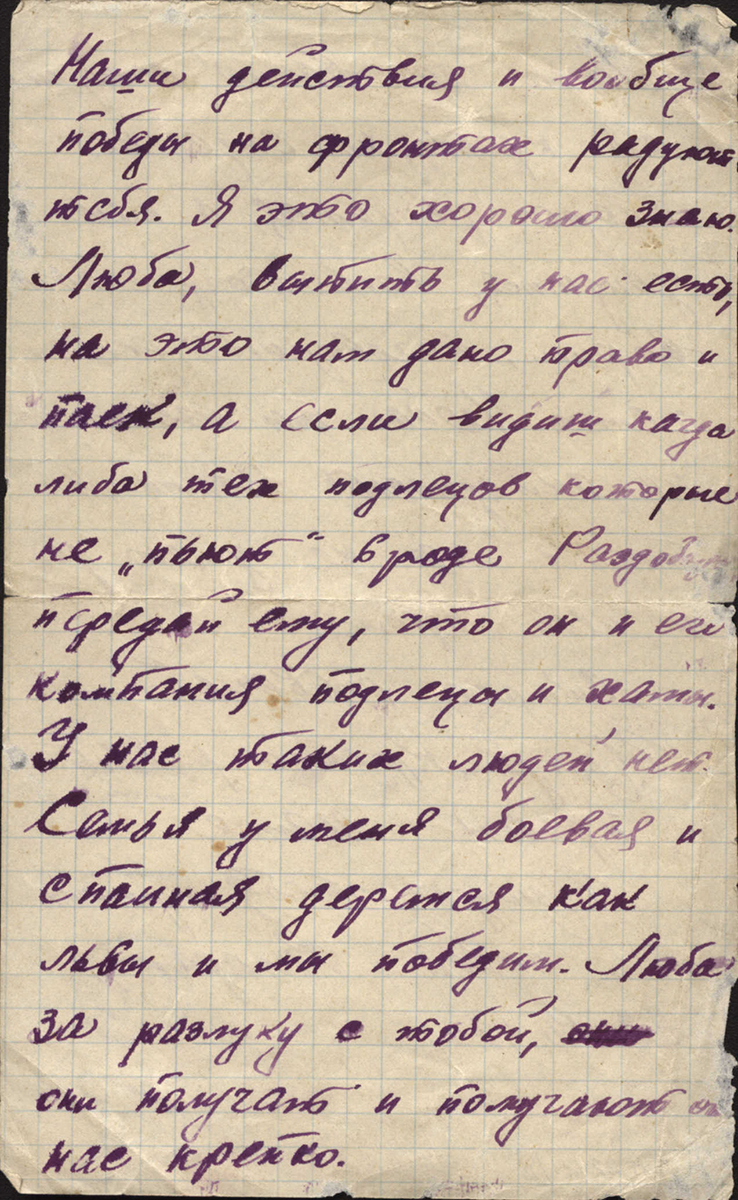 Наши действия и вообще
победы на фронтах радуют
тебя. Я это хорошо знаю.
Люба, выпить у нас есть,
на это нам дано право и
паек, а если видиш када
либа тех подлецов которые
не „пьют“ вроде
передай ему, что он и его
компания подлецы и хамы.
У нас таких людей нет.
Семья у меня боевая и
спаиная дерется как
львы и мы победим. Люба
за разлуку с тобой,
они получат и получают от
нас крепко.